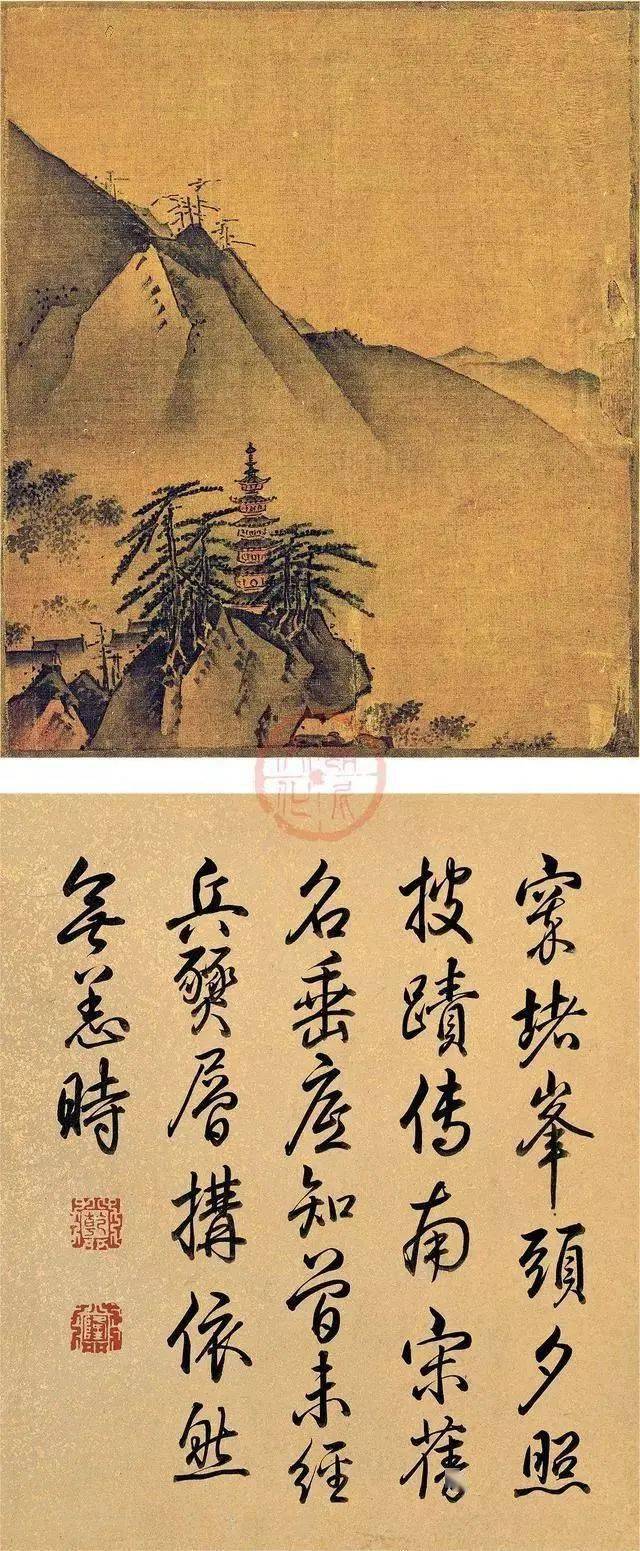 窣堵峯頭夕照
披蹟傳南宋舊
名垂底知曾未經
兵燹層搆依然
無恙時
乾
隆